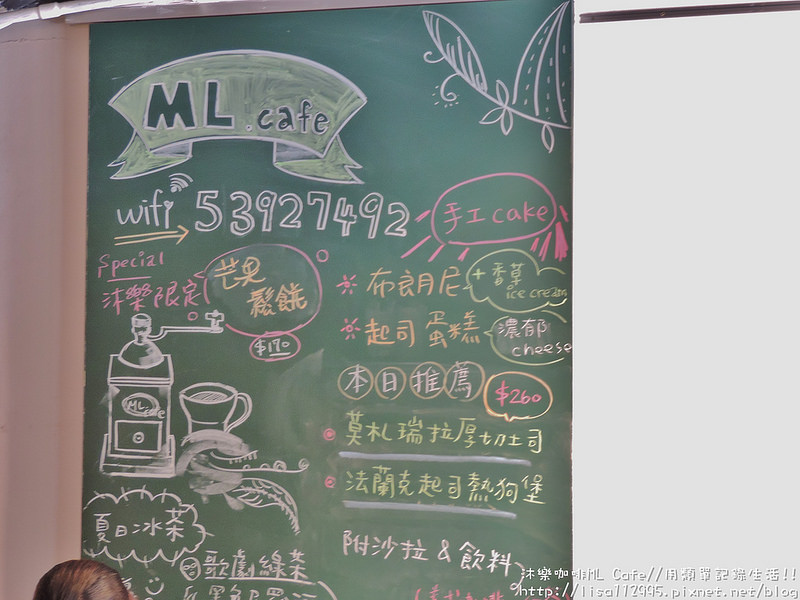 ML.cafe
wifi 53927492
手工cake
Special
沐樂限定
芒果
鬆餅
$170
布朗尼
+香草
ice cream
起司蛋糕
濃郁
cheese
本日推薦
$260
莫札瑞拉厚切土司
法蘭克起司熱狗堡
附沙拉&飲料
ML cafe
夏日冰茶
歌劇綠茶
沐樂咖啡ML Cafe//用類單記錄生活!!
http://lisa112995.pixnet.net/blog